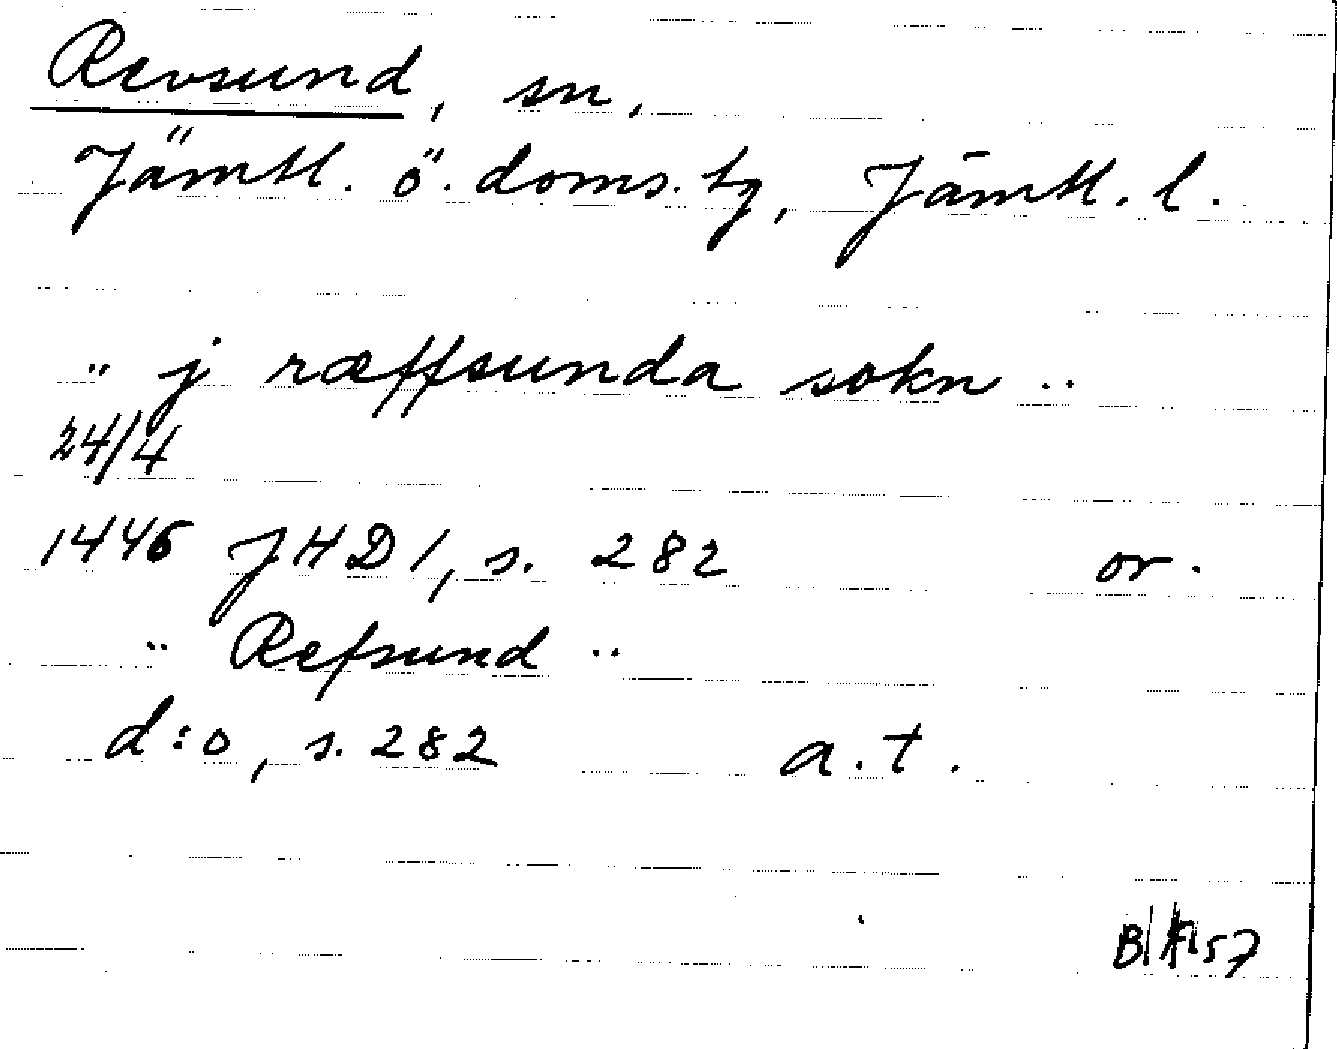 Revsund, sn,
Jämtl. ö. doms. tg, Jämtl. l.
.. j ræffsunda sokn ..
24/4
1446 JHD 1, s. 282 or.
.. Refsund ..
d:o, s. 282 a.t.